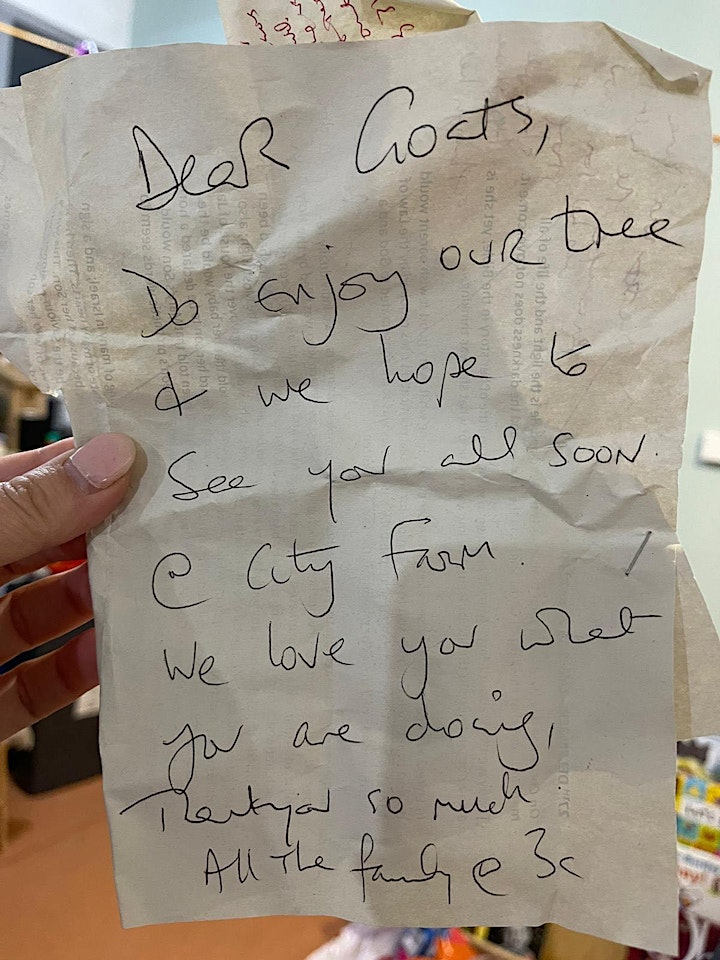 Dear Goats,
Do enjoy our tree
& we hope to
see you all soon.
@ City Farm.
We love you what
you are doing,
Thankyou so much.
All the family @ 3c